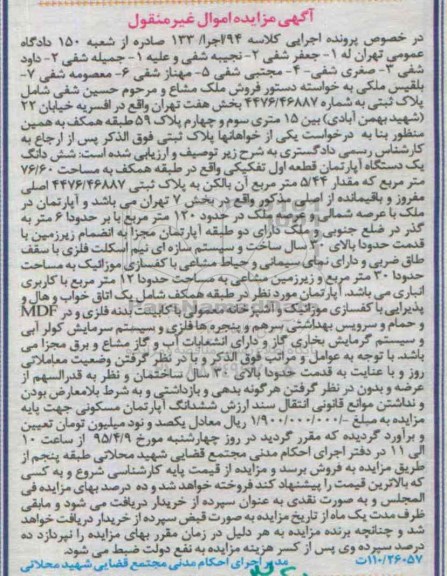 آگهی مزایده اموال غیر منقول
در خصوص پرونده اجرایی کلاسه ۹۴/اجرا/ ۱۳۳ صادره از شعبه ۱۵۰ دادگاه
عمومی تهران له ۱- جعفر شفی ۲- نجیبه شفی و علیه ۱- جمیله شفی ۲- داود
شفی ۳- صغری شفی- ۴- مجتبی شفی ۵- مهناز شفی ۶- معصومه شفی ۷-
بلقیس ملکی به خواسته دستور فروش ملک مشاع و مرحوم حسین شفی شامل
پلاک ثبتی به شماره ۴۴۷۶/۴۶۸۸۷ بخش هفت تهران واقع در افسریه خیابان ۲۲
(شهید بهمن آبادی) بین ۱۵ متری سوم و چهارم پلاک ۵۹ طبقه همکف به همین
منظور بنا به درخواست یکی از خواهانها پلاک ثبتی فوق الذکر پس از ارجاع به
کارشناس رسمی دادگستری به شرح زیر توصیف و ارزیابی شده است: شش دانگ
یک دستگاه آپارتمان قطعه اول تفکیکی واقع در طبقه همکف به مساحت ۷۶/۶۰
متر مربع که مقدار ۵/۴۴ متر مربع آن بالکن به پلاک ثبتی ۴۴۷۶/۴۶۸۸۷ اصلی
مفروز و باقیمانده از اصلی مذکور واقع در بخش ۷ تهران می باشد و آپارتمان در
ملک با عرصه شمالی و عرصه ملک در حدود ۱۲۰ متر مربع با بر حدودا ۶ متر به
گذر در ضلع جنوبی و ملک دارای دو طبقه آپارتمان مجزا به انضمام زیرزمین با
قدمت حدودا بالای ۳۰ سال ساخت و سیستم سازه ای نیم اسکلت فلزی با سقف
طاق ضربی و دارای نمای سیمانی و حیاط مشاعی با کفسازی موزائیک به مساحت
حدودا ۳۰ متر مربع و زیرزمین مشاعی به مساحت حدودا ۱۲ متر مربع با کاربری
انباری می باشد. آپارتمان مورد نظر در طبقه همکف شامل یک اتاق خواب و هال و
پذیرایی با کفسازی موزائیک و آشپزخانه سرامیک با کابینت بدنه فلزی و در MDF
و حمام و سرویس بهداشتی سرهم و پنجره ها فلزی و سیستم سرمایش کولر آبی
و سیستم گرمایش بخاری گاز و دارای انشعابات آب و گاز مشاع و برق مجزا می
باشد. با توجه به عوامل و مراتب فوق الذکر و با در نظر گرفتن وضعیت معاملاتی
روز و با عنایت به قدمت حدودا بالای ۳۰ سال ساختمان و نظر به قدرالسهم از
عرصه و بدون در نظر گرفتن هرگونه بدهی و بازداشتی و به شرط بلامعارض بودن
و نداشتن موانع قانونی انتقال سند ارزش ششدانگ آپارتمان مسکونی جهت پایه
مزایده به مبلغ -/۱/۹۰۰/۰۰۰/۰۰۰ ریال معادل یکصد و نود میلیون تومان تعیین
و برآورد گردیده که مقرر گردید در روز چهارشنبه مورخ ۹۵/۴/۹ از ساعت ۱۰
الی ۱۱ در دفتر اجرای احکام مدنی مجتمع قضایی شهید محلاتی طبقه پنجم از
طریق مزایده به فروش برسد و مزایده از قیمت پایه کارشناسی شروع و به کسی
که بالاترین قیمت را پیشنهاد کند فروخته خواهد شد و ده درصد بهای مزایده فی
المجلس و به صورت نقدی به عنوان سپرده از خریدار دریافت می شود و مابقی
ظرف مدت یک ماه از تاریخ مزایده به صورت قبض سپرده از خریدار دریافت خواهد
شد و چنانچه برنده مزایده به هر دلیل در زمان مقرر بهای مزایده را نپردازد ده
درصد سپرده وی پس از کسر هزینه مزایده به نفع دولت ضبط می شود.
۱۱۰/۲۶۰۵۷ت مدیر اجرای احکام مدنی مجتمع قضایی شهید محلاتی